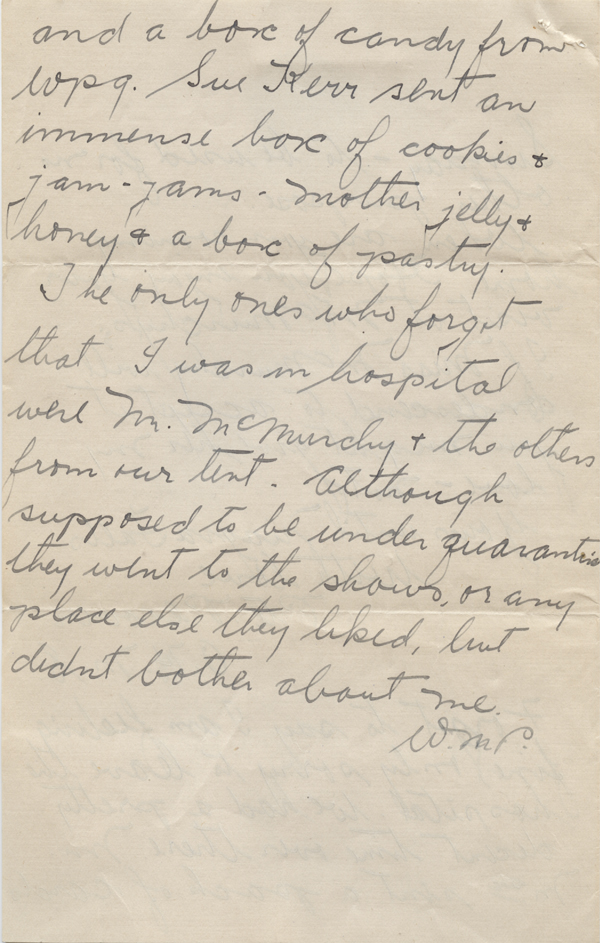 and a box of candy from
Wpg. Sue Kerr sent an
immense box of cookies &
jam-jams - Mother jelly &
honey & a box of pastry.
The only ones who forgot
that I was in hospital
were Mr. McMurchy & the others
from our tent. Although
supposed to be under quarantine
they went to the shows, or any
place else they liked, but
didnt bother about me.
W.M.P.